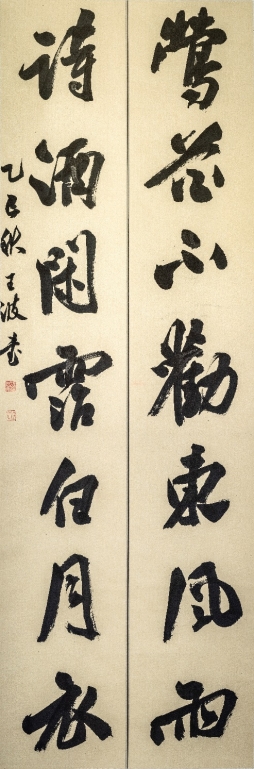 鶯花不勸東風雨
詩酒閑霑白月衣
乙巳秋王波書